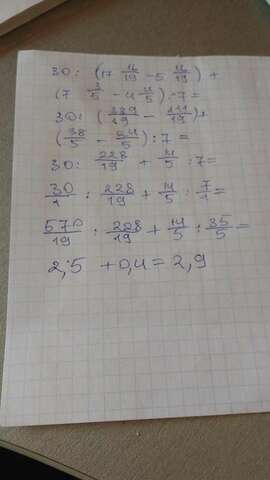 30: (17 16/19 - 5 16/19) +
(7 3/5 - 4 4/5) :7=
30: (339/19 - 111/19)+
(38/5 - 24/5) :7=
30: 228/19 + 14/5 :7=
30/1 : 228/19 + 14/5 : 7/1=
570/19 : 228/19 + 14/5 : 35/5=
2,5 +0,4=2,9